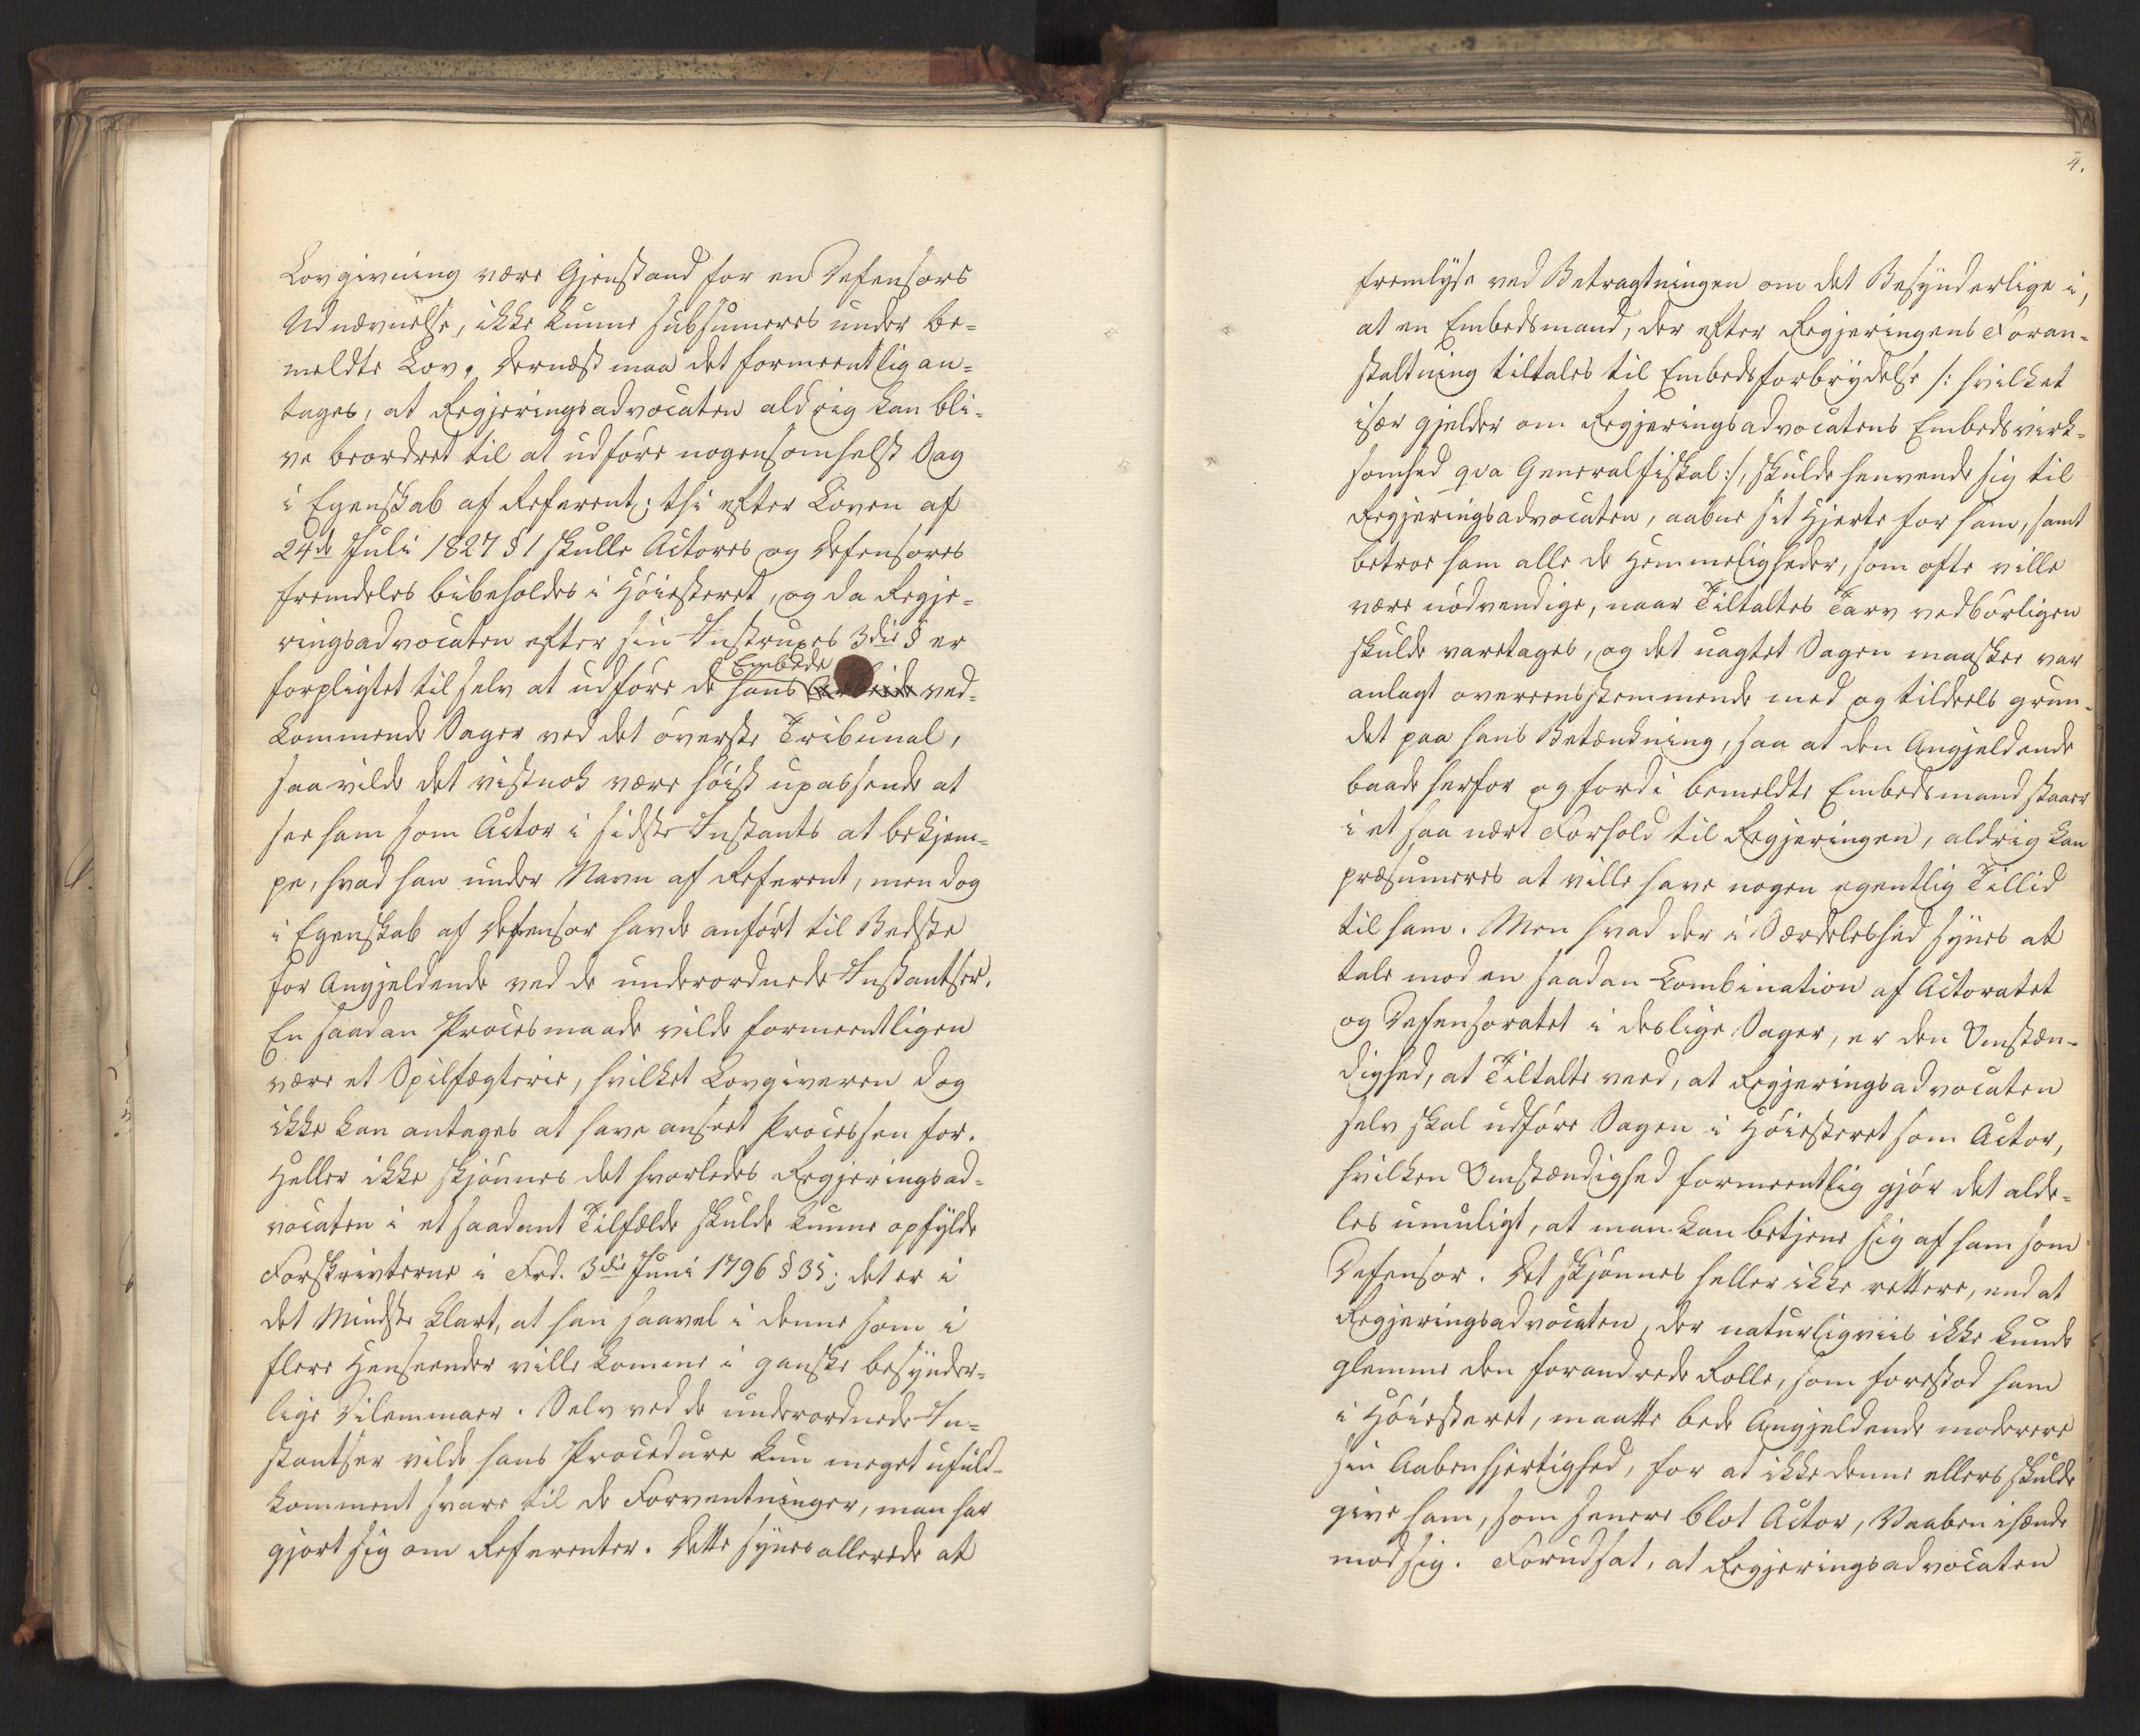 Lovgivning være Gjenstand for en Defensors
Udnævnelse, ikke kunne subsumeres under be-
meldte Lov. Dernæst maa det formeentlig an-
tages, at Regjeringsadvocaten aldrig kan bli-
ve beordret til at udføre nogensomhelst Sag
i Egenskab af Referent; thi efter Loven af
24de Juli 1827 § 1 skulle Actores og Defensores
fremdeles bibeholdes i Høiesteret, og da Regje-
ringsadvocaten efter sin Instruxes 3die § er
Embede
forpligtet til selv at udføre de hans ved-
kommende Sager ved det øverste Tribunal,
saa vilde det vistnok være høist upassende at
see ham som Actor i sidste Instants at bekjem-
pe, hvad han under Navn af Referent, men dog
i Egenskab af Defensor havde anført til Bedste
for Angjeldende ved de underordnede Instantser.
En saadan Procesmaade vilde formeentligen
være et Spilfægterie, hvilket Lovgiveren dog
ikke kan antages at have anseet Processen for.
Heller ikke skjønnes det hvorledes Regjeringsad-
vocaten i et saadant Tilfælde skulde kunne opfylde
Forskrivterne i Frd. 3die Juni 1796 § 35; det er i
det Mindste klart, at han saavel i denne som i
flere Henseender ville komme i ganske besynder-
lige Dilemmaer. Selv ved de underordnede In-
stantser vilde hans Procedure kun meget ufuld-
komment svare til de Forventninger, man har
gjort sig om Referenter. Dette synes allerede at
4.
fremlyse ved Betragtningen om det Besynderlige i,
at en Embedsmand, der efter Regjeringens Foran-
staltning tiltales til Embedsforbrydelse /: hvilket
især gjelder om Regjeringsadvocatens Embedsvirk-
somhed qva Generalfiskal :/, skulde henvende sig til
Regjeringsadvocaten, aabne sit Hjerte for ham, samt
betroe ham alle de Hemmeligheder, som ofte ville
være nødvendige, naar Tiltaltes Tarv vedbørligen
skulde varetages, og det uagtet Sagen maaskee var
anlagt overeensstemmende med og tildeels grun-
det paa hans Betænkning, saa at den Angjeldende
baade herfor og fordi bemeldte Embedsmand staaer
i et saa nært Forhold til Regjeringen, aldrig kan
præsumeres at ville have nogen egentlig Tillid
til ham. Men hvad der i Særdeleshed synes at
tale mod en saadan Combination af Actoratet
og Defensoratet i deslige Sager, er den Omstæn-
dighed, at Tiltalte veed, at Regjeringsadvocaten
selv skal udføre Sagen i Høiesteret som Actor,
hvilken Omstændighed formeentlig gjør det alde-
les umuligt, at man kan betjene sig af ham som
Defensor. Det skjønnes heller ikke rettere, end at
Regjeringsadvocaten, der naturligviis ikke kunde
glemme den forandrede Rolle, som forestod ham
i Høiesteret, maatte bede Angjeldende moderere
sin Aabenhjertighed, for at ikke denne ellers skulde
give ham, som senere blot Actor, Vaaben ihænde
mod sig. Forudsat, at Regjeringsadvocaten